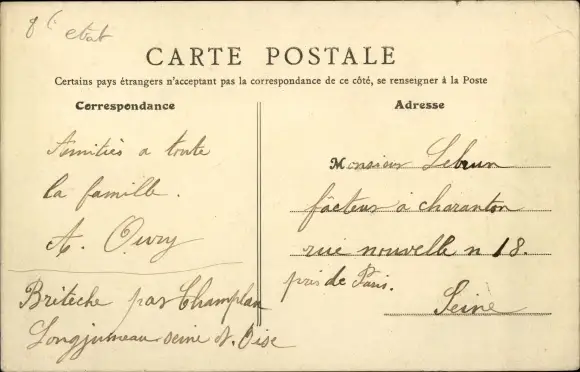 8f etat
CARTE POSTALE
Certains pays étrangers n'acceptant pas la correspondance de ce côté, se renseigner à la Poste
Correspondance
Amitiés a toute
la famille.
A. Oury
Briteche par Champlan
Longjumeau seine et. Oise
Adresse
Monsieur Lebrun
facteur à charanton
rue nouvelle n 18.
près de Paris.
Seine